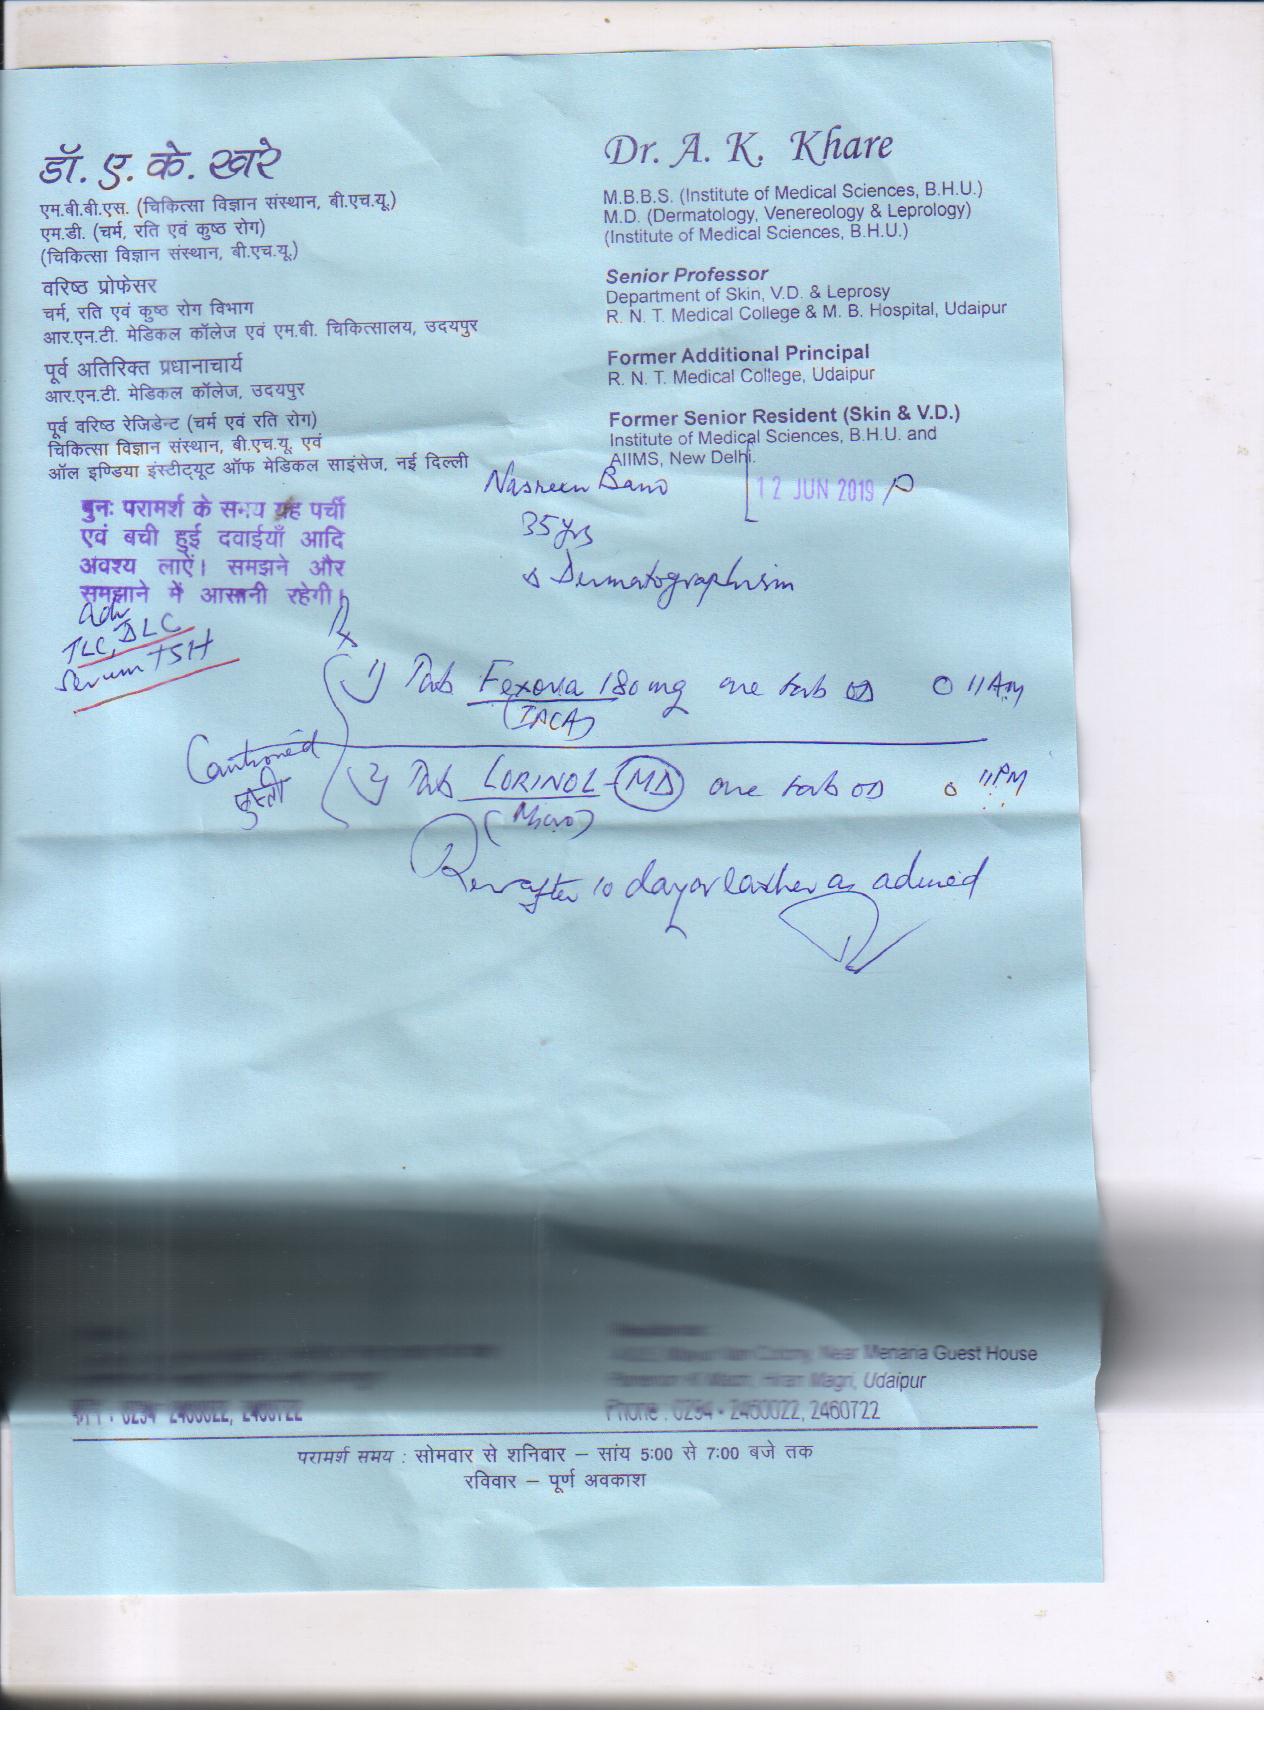 डॉ. ए. के. खरे
एम.बी.बी.एस. (चिकित्सा विज्ञान संस्थान, बी.एच.यू.)
एम.डी. (चर्म, रति एवं कुष्ठ रोग)
(चिकित्सा विज्ञान संस्थान, बी.एच.यू.)
वरिष्ठ प्रोफेसर
चर्म, रति एवं कुष्ठ रोग विभाग
आर.एन.टी. मेडिकल कॉलेज एवं एम.बी. चिकित्सालय, उदयपुर
पूर्व अतिरिक्त प्रधानाचार्य
आर.एन.टी. मेडिकल कॉलेज, उदयपुर
पूर्व वरिष्ठ रेजिडेन्ट (चर्म एवं रति रोग)
चिकित्सा विज्ञान संस्थान, बी.एच.यू. एवं
ऑल इण्डिया इंस्टीट्यूट ऑफ मेडिकल साइंसेज, नई दिल्ली
Dr. A. K. Khare
M.B.B.S. (Institute of Medical Sciences, B.H.U.)
M.D. (Dermatology, Venereology & Leprology)
(Institute of Medical Sciences, B.H.U.)
Senior Professor
Department of Skin, V.D. & Leprosy
R. N. T. Medical College & M. B. Hospital, Udaipur
Former Additional Principal
R. N. T. Medical College, Udaipur
Former Senior Resident (Skin & V.D.)
Institute of Medical Sciences, B.H.U. and
AIIMS, New Delhi.
पुनः परामर्श के समय यह पर्ची
एवं बची हुई दवाईयाँ आदि
अवश्य लाऐं। समझने और
समझाने में आसानी रहेगी।
Nasreen Bano
12 JUN 2019
35 yrs
Dermatographism
Adv
TLC, DLC
Serum TSH
Rx
1) Tab Fexova 180 mg one tab OD 11 AM
Cautioned
2) Tab LORINOL-MD one tab OD 11 PM
(Micro)
Rev after 10 days or earlier as advised
Near Menana Guest House
Magri, Udaipur
फोन : 0294-2460022, 2460722
Phone : 0294 - 2460022, 2460722
परामर्श समय : सोमवार से शनिवार – सांय 5:00 से 7:00 बजे तक
रविवार – पूर्ण अवकाश